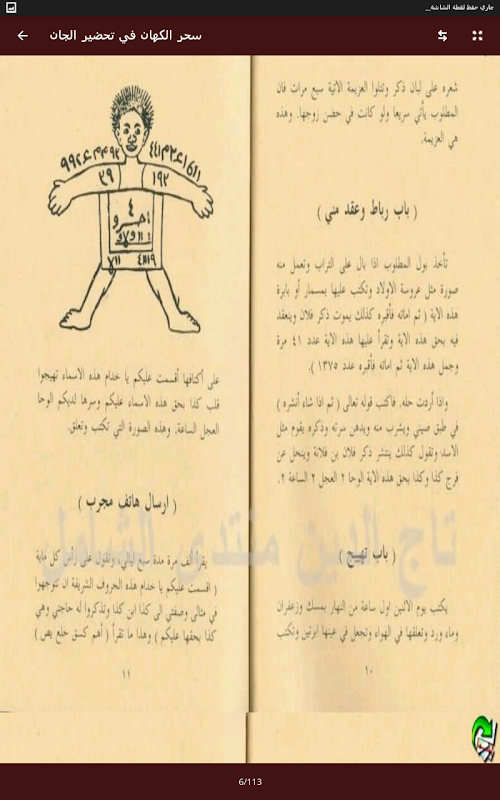 جاري حفظ لقطة الشاشة...
سحر الكهان في تحضير الجان
شعره على لبان ذكر وتتلوا العزيمة الاتية سبع مرات فان
المطلوب يأتي سريعا ولو كانت في حضن زوجها. وهذه
هي العزيمة.
( باب رباط وعقد مني )
تأخذ بول المطلوب اذا بال على التراب وتعمل منه
صورة مثل عروسة الاولاد وتكتب عليها بمسمار أو بابرة
هذه الاية ( ثم اماته فأقبره كذلك يموت ذكر فلان وينعقد
فيه بحق هذه الاية وتقرأ عليها هذه الاية عدد ٤١ مرة
وجمل هذه الاية ثم اماته فأقبره عدد ١٣٧٥ ).
واذا أردت حله. فاكتب قوله تعالى ( ثم اذا شاء أنشره )
في طبق صيني ويشرب منه ويدهن سرته وذكره يقوم مثل
الاسد وتقول كذلك ينتشر ذكر فلان بن فلانة وينحل عن
فرج كذا وكذا بحق هذه الاية الوحا ٢ العجل ٢ الساعة ٢.
( باب تهييج )
يكتب يوم الاثنين اول ساعة من النهار بمسك وزعفران
وماء ورد وتعلقها في الهواء وتجعل في عينها ابرتين وتكتب
١٠
٣٩
١٩٢
٤
احرو
٤١١٩
على أكتافها أقسمت عليكم يا خدام هذه الاسماء تهيجوا
قلب كذا بحق هذه الاسماء عليكم وسرها لديكم الوحا
العجل الساعة. وهذه الصورة التي تكتب وتعلق.
( ارسال هاتف مجرب )
يقرأ ألف مرة مدة سبع ليالي، وتقول على رأس كل ماية
( اقسمت عليكم يا خدام هذه الحروف الشريفة ان تتوجهوا
في مثالى وصفتي الى كذا ابن كذا وتذكروا له حاجتي وهي
كذا بحقها عليكم ) وهذا ما تقرأ ( أهم كسق حلع يص )
١١
تاج الدين منتدى الشامل
6/113